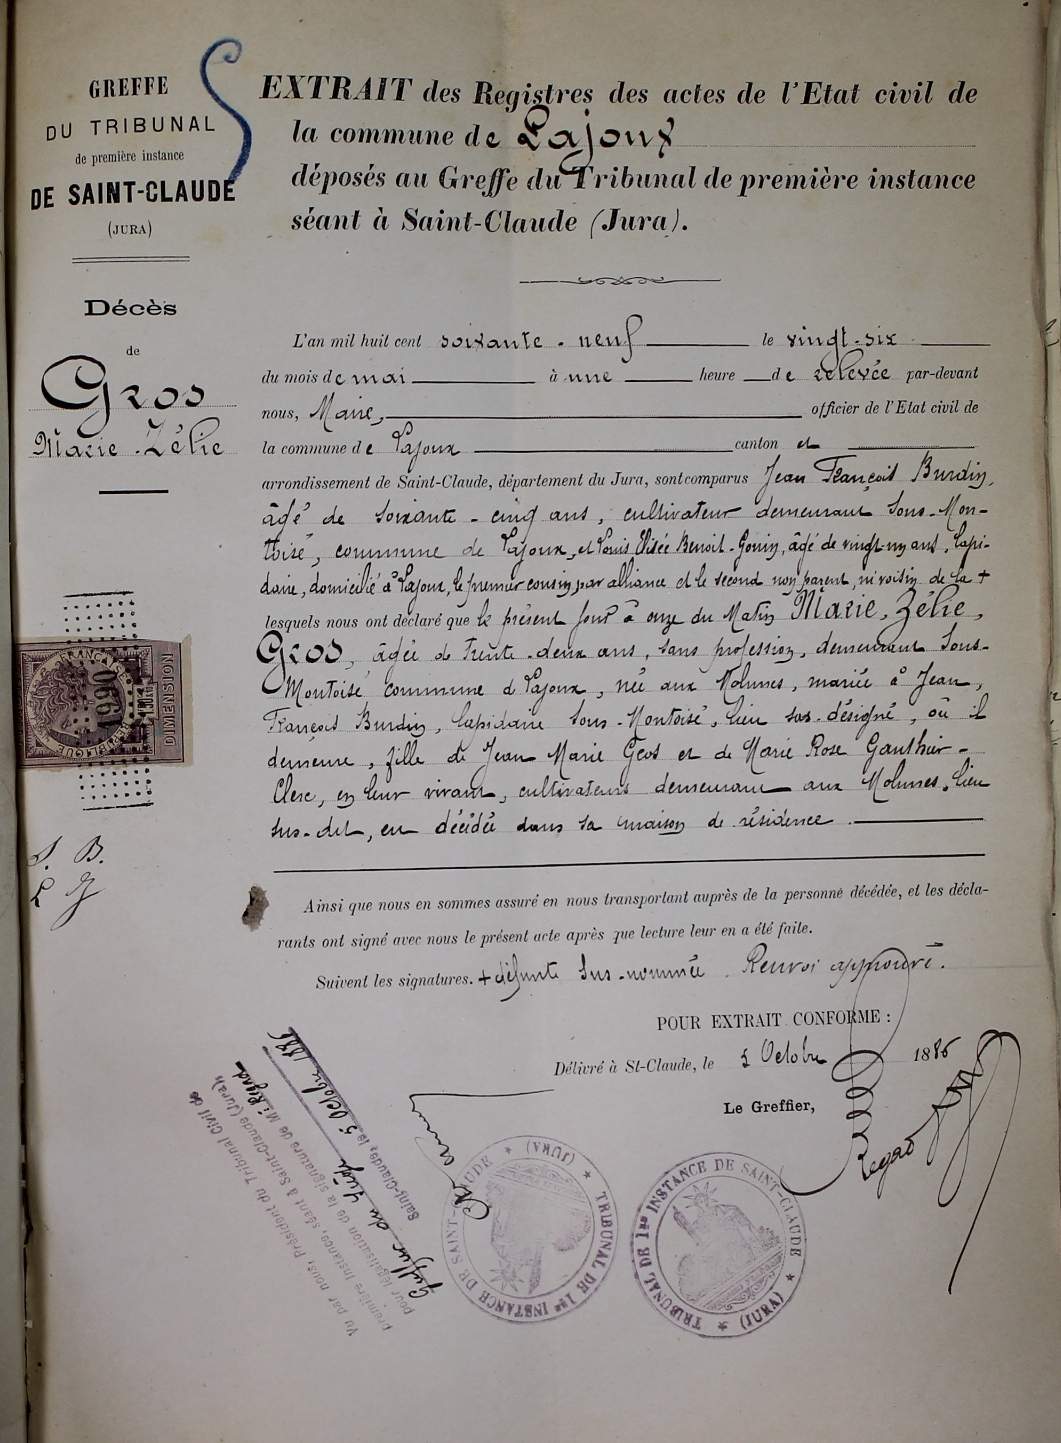 GREFFE
DU TRIBUNAL
de première instance
DE SAINT-CLAUDE
(JURA)
Décès
de
Gros
Marie-Zélie
EXTRAIT des Registres des actes de l'Etat civil de
la commune de Lajoux
déposés au Greffe du Tribunal de première instance
séant à Saint-Claude (Jura).
L'an mil huit cent soixante-neuf le vingt-six
du mois de mai à une heure de relevée par-devant
nous, Maire, officier de l'Etat civil de
la commune de Lajoux canton et
arrondissement de Saint-Claude, département du Jura, sont comparus Jean François Burdin,
âgé de soixante-cinq ans, cultivateur demeurant Sous-Mon-
toisé, commune de Lajoux, et Louis Elisée Benoit-Gonin, âgé de vingt-un ans, lapi-
daire, domicilié à Lajoux, le premier cousin par alliance et le second non parent, ni voisin de la +
lesquels nous ont déclaré que le présent jour à onze du Matin Marie, Zélie,
Gros, âgée de trente-deux ans, sans profession, demeurant Sous-
Montoisé commune d Lajoux, née aux Molunes, mariée à Jean,
François Burdin, lapidaire Sous-Montoisé, lieu sus-désigné, où il
demeure, fille de Jean Marie Gros et de Marie Rose Gauthier-
Clerc, en leur vivant, cultivateurs demeurant aux Molunes, lieu
sus-dit, en décédée dans sa maison de résidence.
Ainsi que nous en sommes assuré en nous transportant auprès de la personne décédée, et les décla-
rants ont signé avec nous le présent acte après que lecture leur en a été faite.
Suivent les signatures. + défunte sus-nommée. Renvoi approuvé.
POUR EXTRAIT CONFORME :
Délivré à St-Claude, le 5 Octobre 1886
Le Greffier,
Regad
J. B.
L G
RÉPUBLIQUE FRANÇAISE
1990
DIMENSION
Vu par nous, Président du Tribunal Civil de
première instance, séant à Saint-Claude (Jura),
pour légalisation de la signature de Mr Regad
Greffier du Siège
Saint-Claude, le 5 Octobre 1886
TRIBUNAL DE 1re INSTANCE DE SAINT-CLAUDE * (JURA) *
TRIBUNAL DE 1re INSTANCE DE SAINT-CLAUDE * (JURA) *